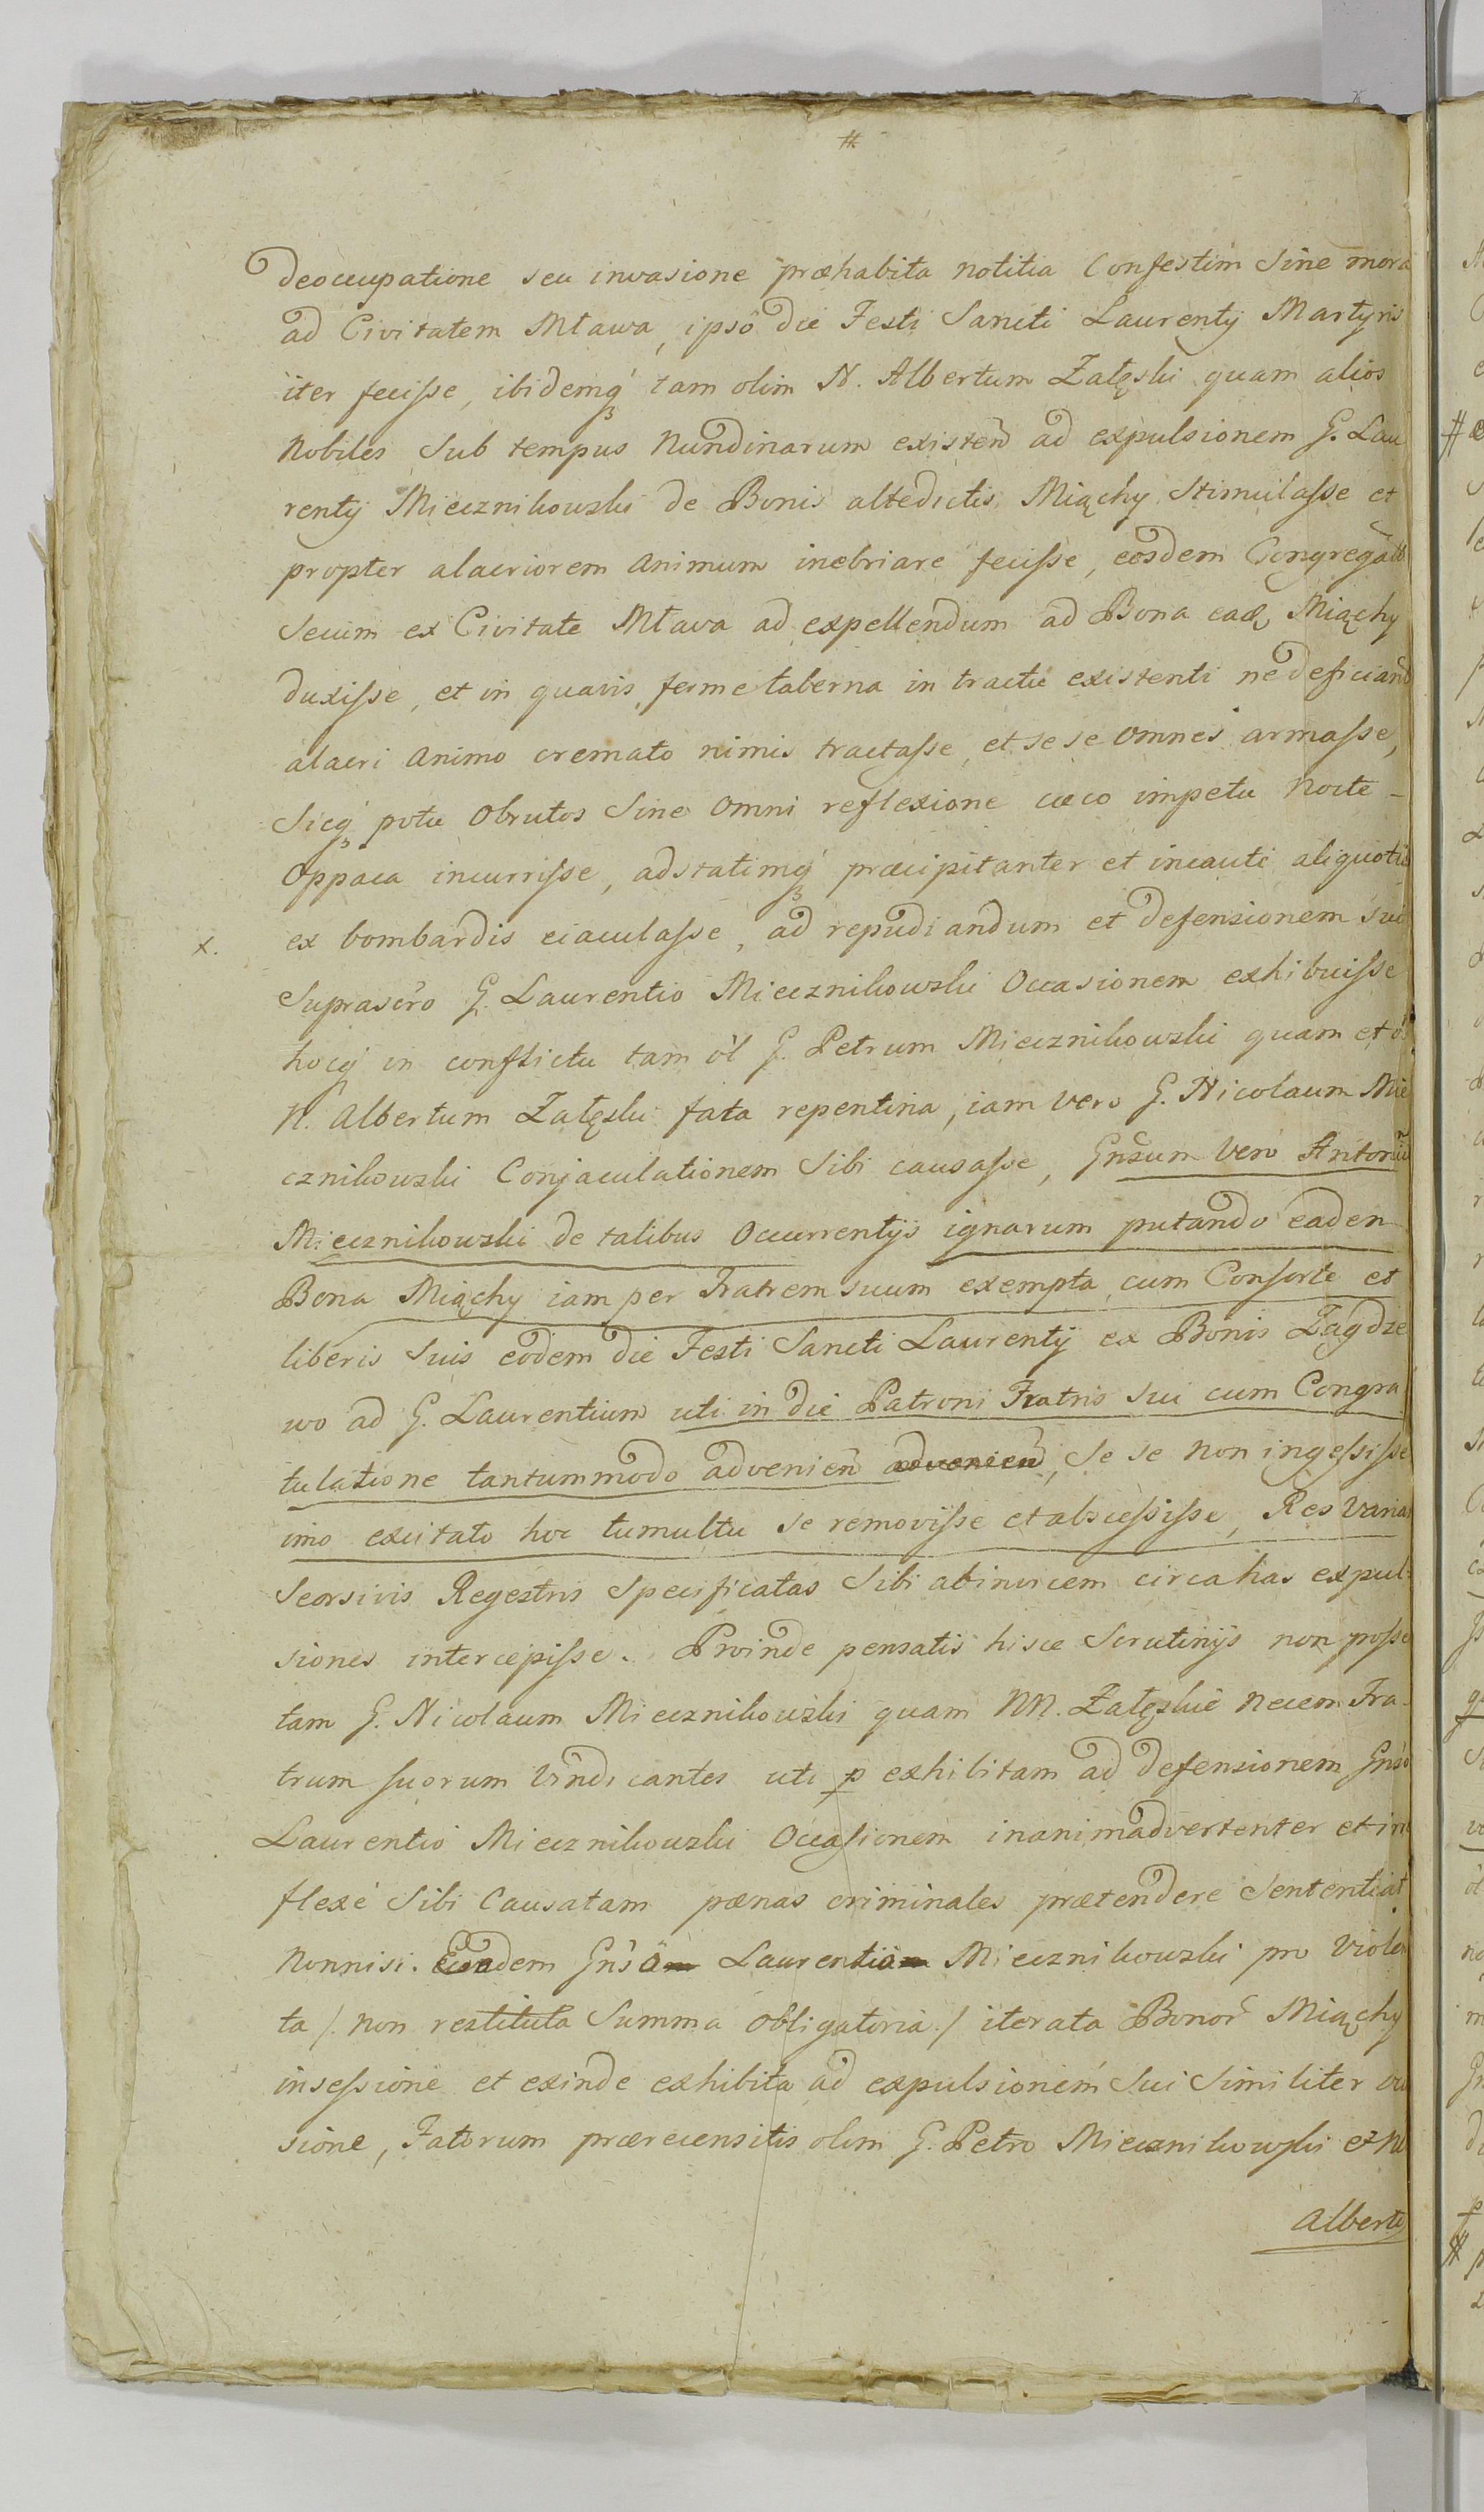 #
deoccupatione seu invasione præhabita notitia Confestim Sine mora
ad Civitatem Mława, ipsô die Festi Sancti Laurentij Martyris
iter fecisse, ibidemq́ʒ tam olim N. Albertum Załęski quam alios
Nobiles Sub tempus Nundinarum existen̄ ad expulsionem G. Lau
rentij Miecznikowski de Bonis altedictis Miąchy Stimulasse et
propter alacriorem animum inebriare fecisse, eosdem
Secum ex Civitate Mława ad expellendum ad Bona Miąchy
duxisse, et in quavis ferme taberna in tractu existenti ne deficiand
alacri animo cremato nimis tractasse, et se se omnes armasse,
Sicq́ʒ potu Obrutos Sine Omni reflexione cæco impetu Nocte -
Oppaca incurrisse, adstatimq́ʒ præcipitanter et incaute aliquoties
x. ex bombardis eiaculasse, ad repudiandum et defensionem sui
Suprascr̃o G. Laurentio Miecznikowski Occasionem exhibuisse
hocq́ in conflictu tam ol̃ G. Petrum Miecznikowski quam et
N. Albertum Załęski fata repentina, iam vero G. Nicolaum Mie
cznikowski Conjaculationem Sibi causasse, Gn̄sum Vero Antoniū
Miecznikowski de talibus Occurrentijs ignarum putando eadem
Bona Miąchy iam per Fratrem suum exempta, cum Consorte et
liberis Suis eodem die Festi Sancti Laurentij ex Bonis Zagdze
wo ad G. Laurentium uti in die Patroni Fratris sui cum Congra
tulatione tantummodo advenien̄ advenien̄, Se se non ingessisse
imo excitato hoc tumultu se removisse et abscessisse, Res Varias
Seorsivis Regestris Specificatas Sibi abinvicem circa has expul-
siones intercepisse. Proinde pensatis hisce Scrutinijs non posse
tam G. Nicolaum Miecznikowski quam NN. Załęskie necem Fra-
trum suorum Vindicantes uti p exhibitam ad defensionem Gn̄so
Laurentio Miecznikowski Occasionem inanimadvertenter et in
flexe Sibi Causatam pænas criminales prætendere Sententiat
Nonnisi. Eodem Gn̄so Laurentio Miecznikowski pro Violen
ta /. non restituta Summa obligatoria ./ iterata Bonor̃ Miąchy
insessione et exinde exhibita ad expulsionem Sui Similiter
sione, Fatorum prærecensitis olim G. Petro Miecznikowski et
Alberti